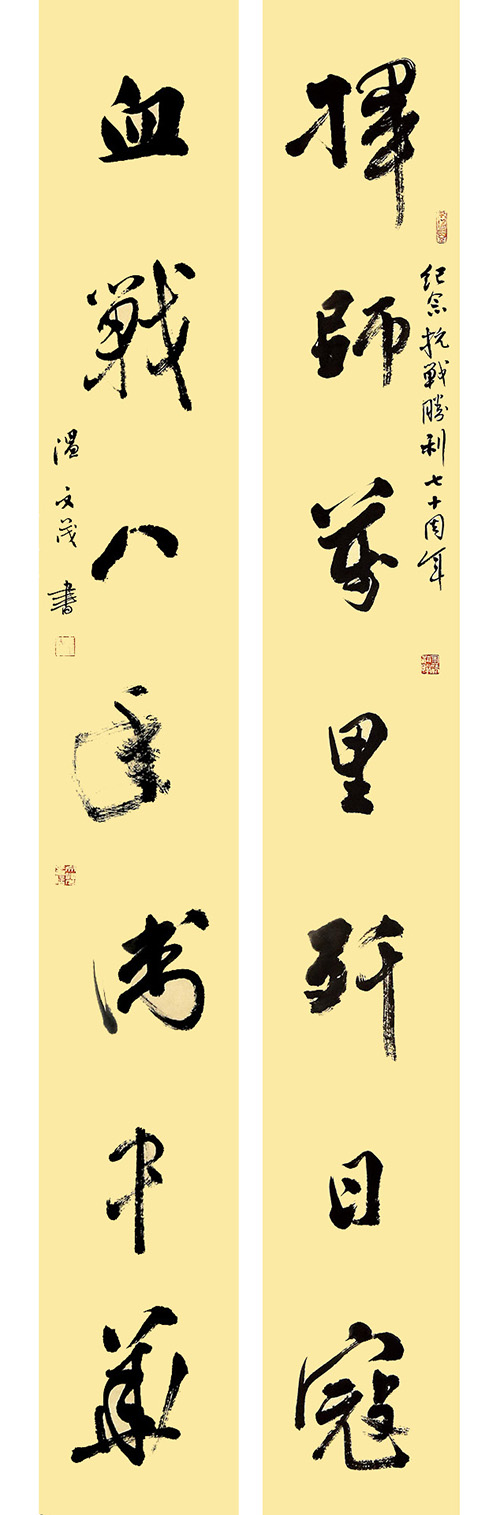 紀念抗戰勝利七十周年
揮師萬里歼日寇
血戰八年衛中華
温文茂書